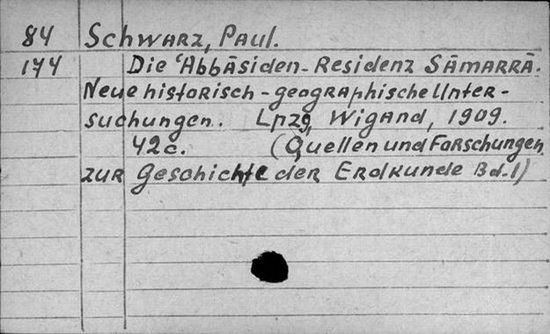 84 Schwarz, Paul.
174 Die 'Abbāsiden-Residenz Sāmarrā.
Neue historisch-geographische Unter-
suchungen. Lpzg, Wigand, 1909.
42c. (Quellen und Forschungen
zur Geschichte der Erdkunde Bd.1)